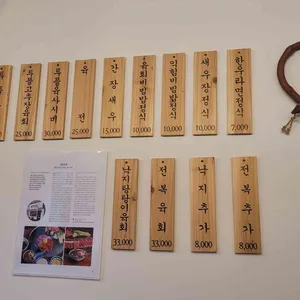 특별고추장육회
25,000
특별육사시미
30,000
육전
25,000
간장새우
15,000
육회비빔밥정식
10,000
익힘비빔밥정식
10,000
새우장정식
10,000
한우라면정식
7,000
낙지탕탕이육회
33,000
전복육회
33,000
낙지추가
8,000
전복추가
8,000